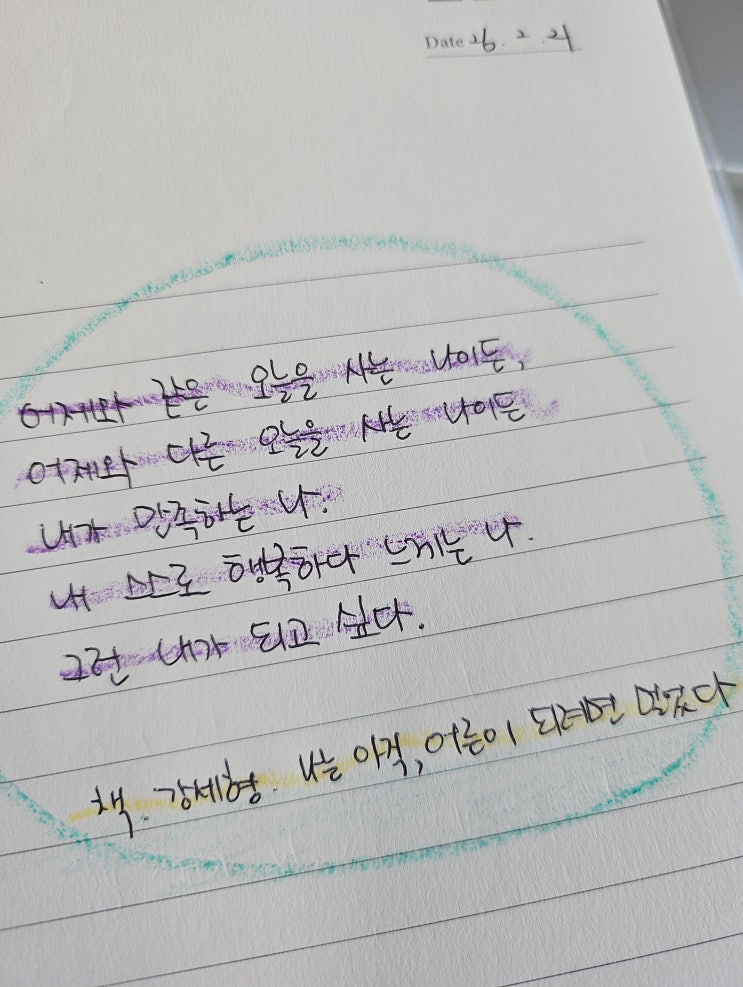 Date 26. 2. 21
어제와 같은 오늘을 사는 나이든,
어제와 다른 오늘을 사는 나이든
내가 만족하는 나.
내 스스로 행복하다 느끼는 나.
그런 내가 되고 싶다.
책. 강세형. 나는 아직, 어른이 되려면 멀었다